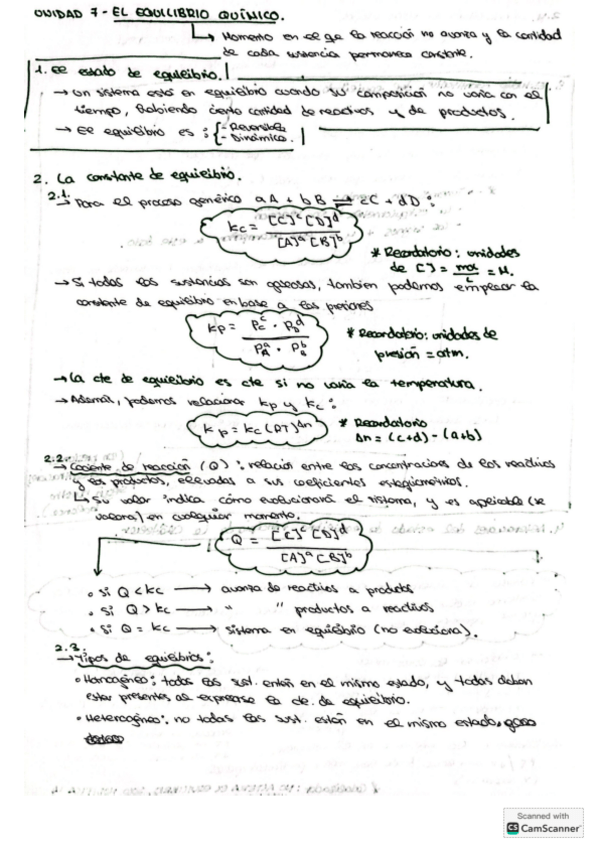 UNIDAD 7 - EL EQUILIBRIO QUÍMICO.
↳ Momento en el que la reacción no avanza y la cantidad
de cada sustancia permanece constante.
1. El estado de equilibrio.
→ Un sistema está en equilibrio cuando su composición no varía con el
tiempo, habiendo cierta cantidad de reactivos y de productos.
→ El equilibrio es: { - Reversible
- Dinámico.
2. La constante de equilibrio.
2.1.
→ Para el proceso genérico aA + bB ⇌ cC + dD:
Kc = [C]^c [D]^d / [A]^a [B]^b
* Recordatorio: unidades
de [] = mol/L = M.
→ Si todas las sustancias son aqueosas, tambien podemos emplear la
constante de equilibrio en base a las presiones
Kp = P_C^c · P_D^d / P_A^a · P_B^b
* Recordatorio: unidades de
presión = atm.
→ La cte de equilibrio es cte si no varía la temperatura.
→ Además, podemos relacionar Kp y Kc:
Kp = Kc (RT)^Δn
* Recordatorio
Δn = (c+d) - (a+b)
2.2.
→ Cociente de reacción (Q): relación entre las concentraciones de los reactivos
y los productos, elevadas a sus coeficientes estequiométricos.
↳ Su valor indica cómo evolucionará el sistema, y es apreciable (se
valora) en cualquier momento.
Q = [C]^c [D]^d / [A]^a [B]^b
• Si Q < Kc → avanza de reactivos a productos
• Si Q > Kc → " " productos a reactivos
• Si Q = Kc → sistema en equilibrio (no evoluciona).
2.3.
→ Tipos de equilibrios:
• Homogéneo: todas las sust. están en el mismo estado, y todas deben
estar presentes al expresarse la cte. de equilibrio.
• Heterogéneo: no todas las sust. están en el mismo estado,
Scanned with
CS CamScanner